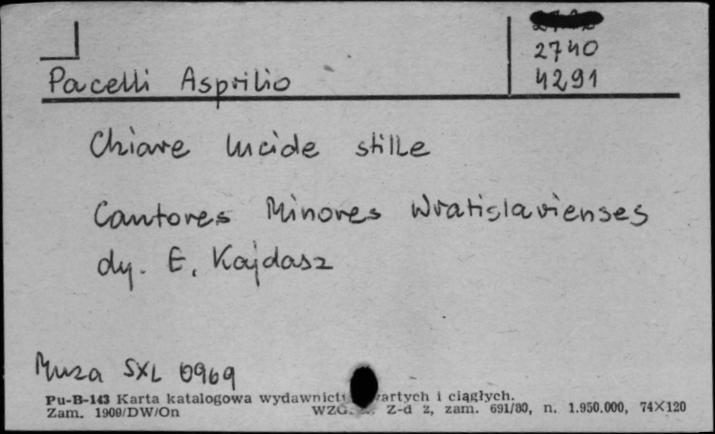 2740
Pacelli Asprilio 4291
Chiare lucide stille
Cantores Minores Wratislavienses
dy. E. Kajdasz
Muza SXL 0969
Pu-B-143 Karta katalogowa wydawnict artych i ciągłych.
Zam. 1900/DW/On WZG. Z-d 2, zam. 691/80, n. 1.950.000, 74X120